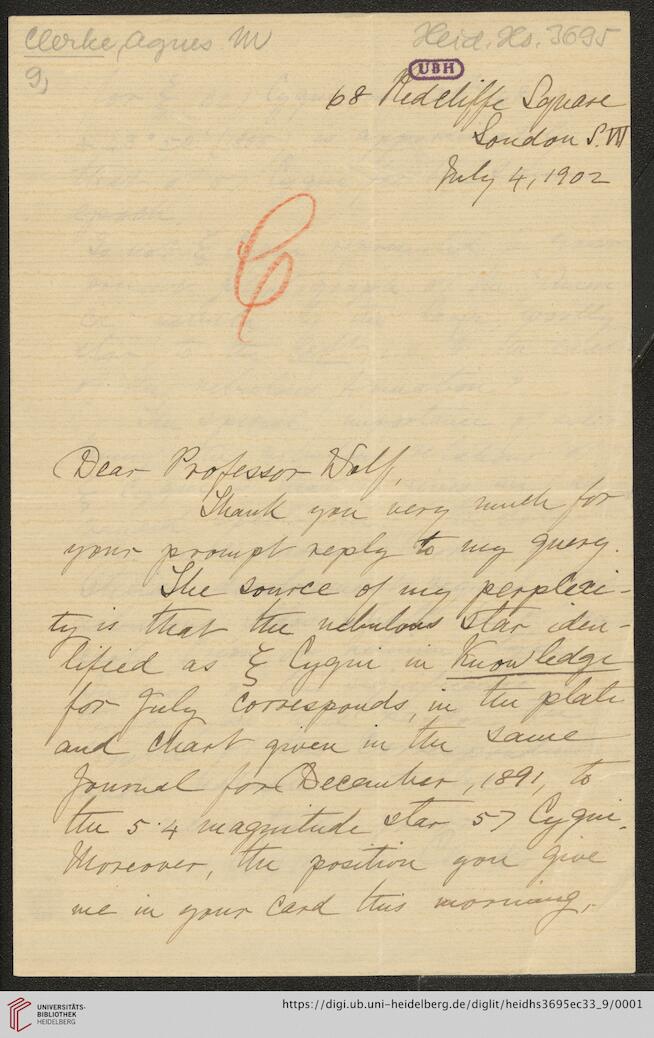 Clerke, Agnes M
Heid. Hs. 3695
9)
UBH
68 Redcliffe Square
London S.W
July 4, 1902
C
Dear Professor Wolf,
Thank you very much for
your prompt reply to my query.
The source of my perplexi-
ty is that the nebulous star iden-
tified as ξ Cygni in Knowledge
for July corresponds, in the plate
and chart given in the same
Journal for December, 1891, to
the 5.4 magnitude star 57 Cygni.
Moreover, the position you give
me in your card this morning,
UNIVERSITÄTS-
BIBLIOTHEK
HEIDELBERG
https://digi.ub.uni-heidelberg.de/diglit/heidhs3695ec33_9/0001